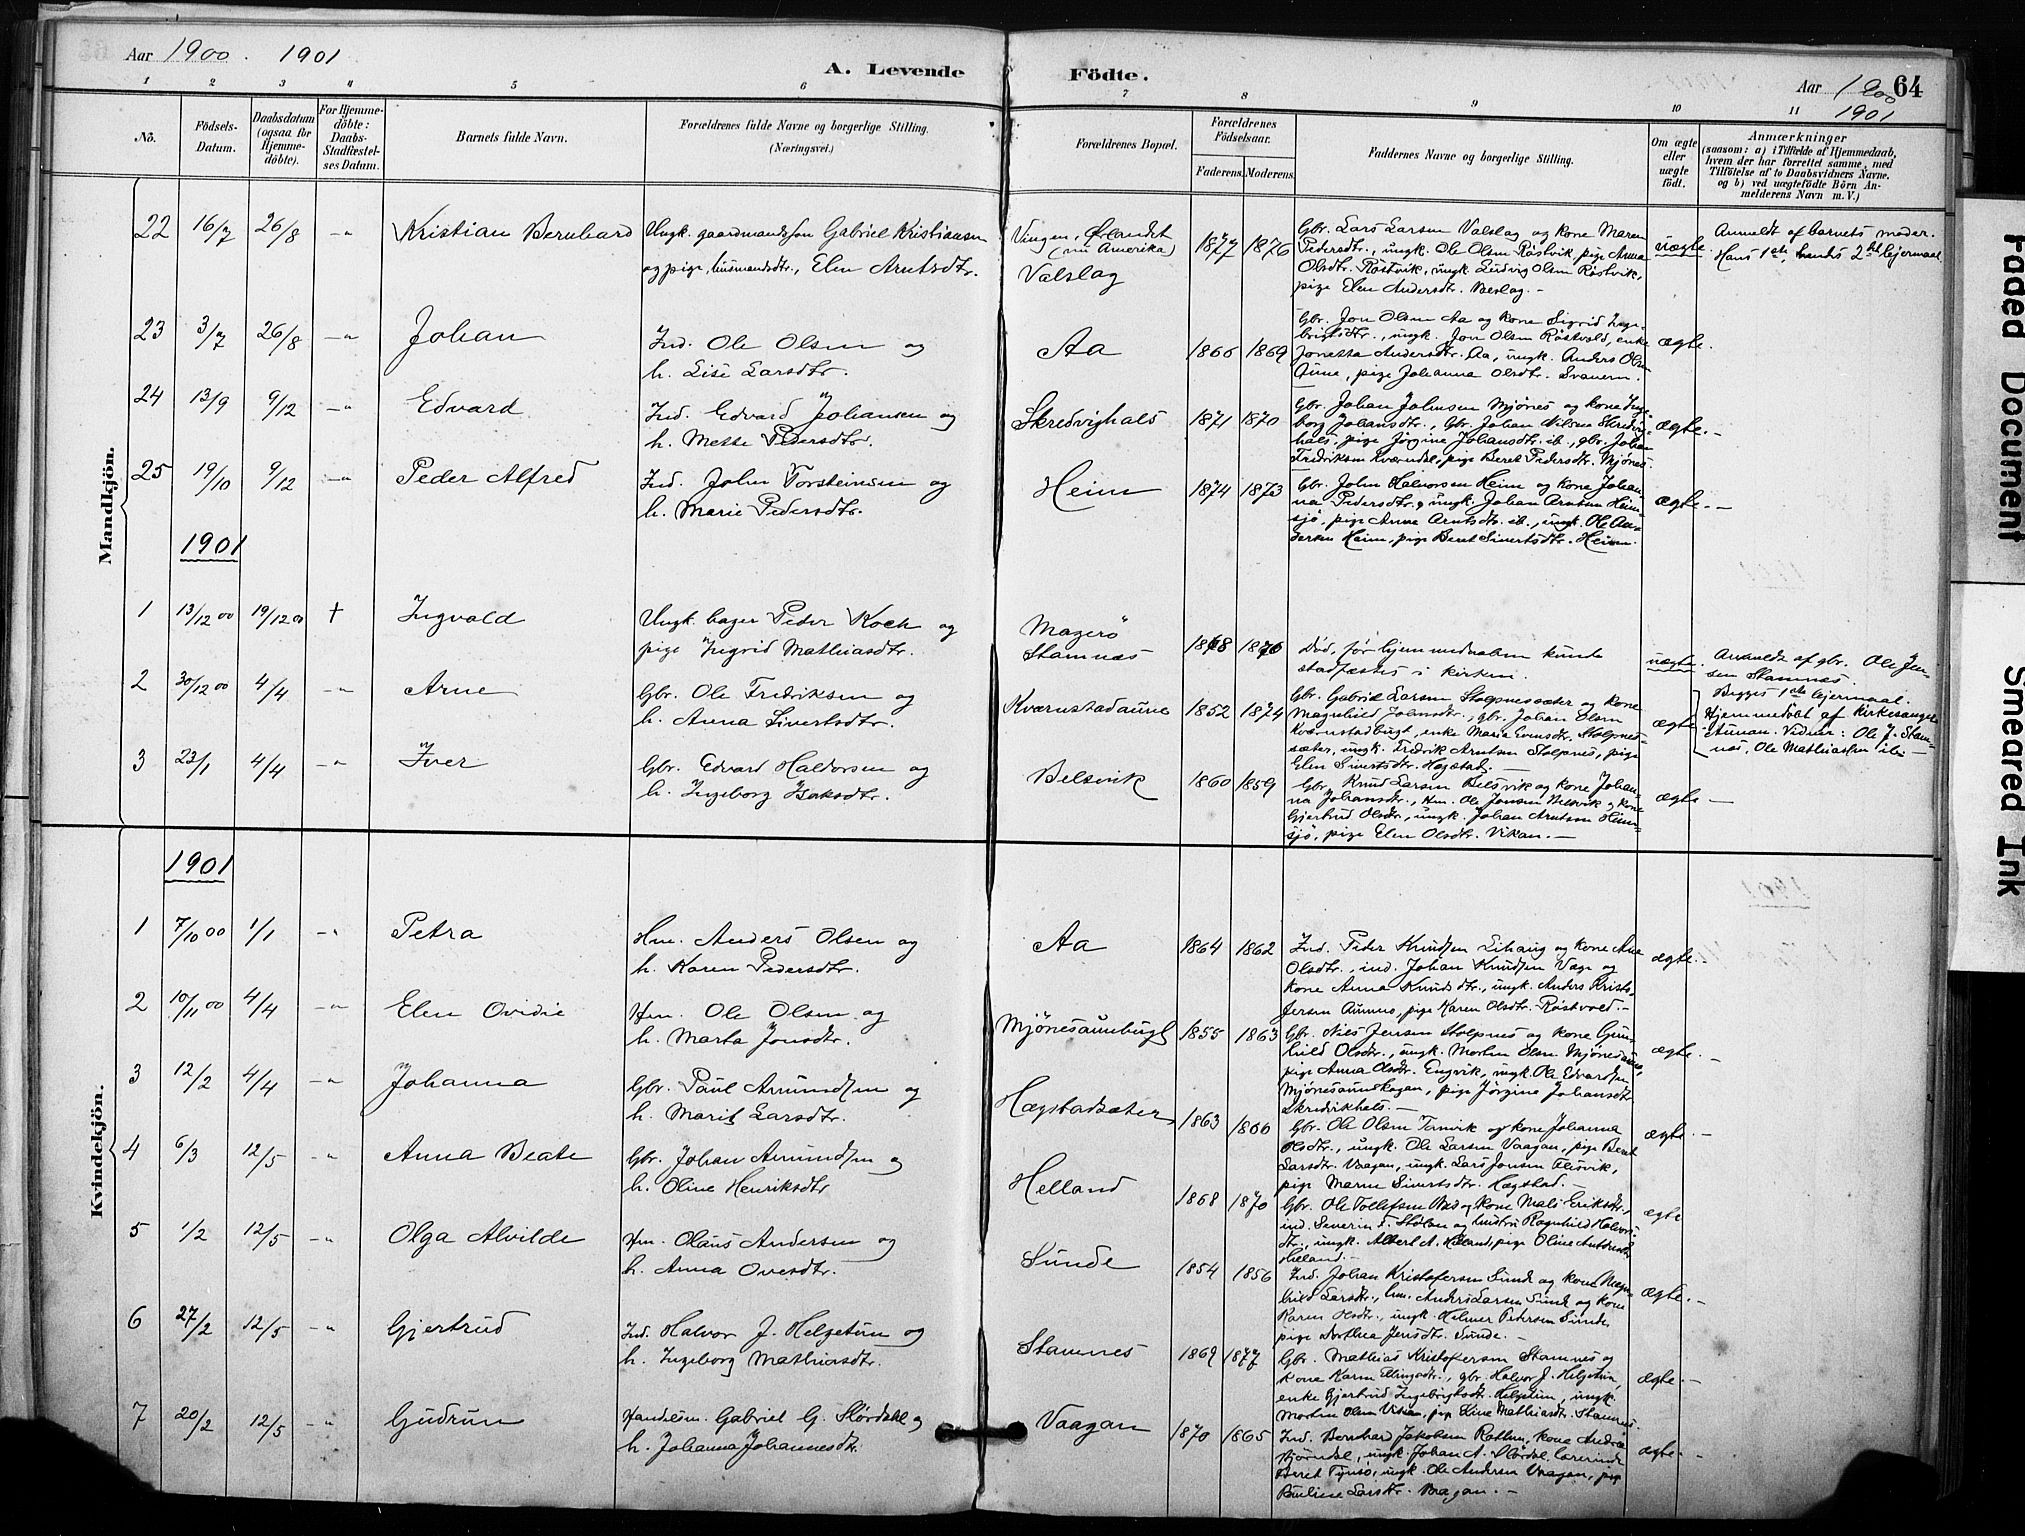 Aar 1900. 1901
A. Levende
Födte.
Aar 1900
1901
64
1 2 3 4 5 6 7 8 9 10 11
No.
Födsels-Datum.
Daabsdatum (ogsaa for Hjemmedöbte).
For Hjemmedöbte: Daabs-Stadfæstelses Datum.
Barnets fulde Navn.
Forældrenes fulde Navne og borgerlige Stilling.
(Næringsvei.)
Forældrenes Bopæl.
Forældrenes Födselsaar.
Faderens. Moderens.
Faddernes Navne og borgerlige Stilling.
Om ægte eller uægte födt.
Anmærkninger
(saasom: a) i Tilfælde af Hjemmedaab,
hvem der har forrettet samme, med
Tilföielse af to Daabsvidners Navne.
og b) ved uægtefödte Börn Anmelderens Navn m. V.)
Mandkjön.
22 16/7 26/8 -"- Kristian Bernhard
Ungk. gaardmandssön Gabriel Kristiansen
og pige, husmandsdtr., Elen Arntsdtr.
Vingen, Ørlandet
(nu Amerika)
Valslag
1877 1876
Gbr. Lars Larsen Valslag og kone Maren
Pedersdtr., ungk. Ole Olsen Röstvik, pige Anna
Olsdtr. Röstvik, ungk. Ludvig Olsen Röstvik,
pige Elen Andersdtr. Valslag. -
uægte.
Anmeldt af barnets moder.
Hans 1ste, hendes 2det leiermaal
23 3/7 26/8 -"- Johan
Ind. Ole Olsen og
h. Lise Larsdtr.
Aa 1866 1869
Gbr. Jon Olsen Aa og kone Sigrid Inge-
brigtsdtr., ungk. Jon Olsen Röstvold, enke
Jonetta Andersdtr. Aa, ungk. Anders Olsen
Aune, pige Johanna Olsdtr. Svanem.
ægte.
24 13/9 9/12 -"- Edvard
Ind. Edvard Johansen og
h. Mette Pedersdtr.
Skredvighals 1871 1870
Gbr. Johan Johnsen Mjönes og kone Inge-
borg Johansdtr., Gbr. Johan Nilsen Skredvig-
hals, pige Jörgine Johansdtr. ib., gbr. Johan
Fredriksen Kværndal, pige Beret Pedersdtr. Mjönes.
ægte. -
25 19/10 9/12 -"- Peder Alfred
Ind. John Torsteinsen og
h. Marie Pedersdtr.
Heim 1874 1873
Gbr. John Halvorsen Heim og kone Johan-
na Pedersdtr., ungk. Johan Arntsen Heim-
sjö, pige Anna Arntsdtr. ib., ungk. Ole An-
dersen Heim, pige Beret Sivertsdtr. Heim.
ægte. -
1901
1 13/12 00 19/12 00 † Ingvald
Ungk. bager Peder Koch og
pige Ingrid Mathiasdtr.
Magerö
Stamnes
1868 1876
Död, för hjemmedaaben kunde
stadfæstes i kirken.
uægte.
Anmeldt af gbr. Ole Jen-
sen Stamnes.
Begges 1ste leiermaal.
Hjemmedöbt af kirkesanger
Aunan. Vidner: Ole J. Stam-
nes, Ole Mathiassen ib. -
2 30/12 00 4/4 -"- Arne
Gbr. Ole Fredriksen og
h. Anna Sivertsdtr.
Kværnstadaune 1852 1874
Gbr. Gabriel Larsen Stolpnessæter og kone
Magnhild Johnsdtr., gbr. Johan Olsen
Kværnstadbugt, enke Marie Evensdtr. Stolpnes-
sæter, ungk. Fredrik Arntsen Stolpnes, pige
Elen Sivertsdtr. Hægstad. -
ægte
3 23/1 4/4 -"- Iver
Gbr. Edvard Haldorsen og
h. Ingeborg Isaksdtr.
Belsvik 1860 1859
Gbr. Knud Larsen Belsvik og kone Johan-
na Johansdtr., Hm. Ole Jonsen Belsvik og kone
Gjertrud Olsdtr., ungk. Johan Arntsen Heim-
sjö, pige Elen Olsdtr. Vikan. -
ægte -
Kvindekjön.
1901
1 7/10 00 1/1 -"- Petra
Hm. Anders Olsen og
h. Karen Pedersdtr.
Aa 1864 1862
Ind. Peder Knudsen Lihaug og kone Ane
Olsdtr., ind. Johan Knudsen Vage og
kone Anna Knudsdtr., ungk. Anders Krist-
Jensen Aunmo, pige Karen Olsdtr. Röstvold. -
ægte. -
2 10/11 00 4/4 -"- Elen Ovidie
Hm. Ole Olsen og
h. Marta Jonsdtr.
Mjönesaunbugt 1855 1863
Gbr. Nils Jensen Stolpnes og kone Gun-
hild Olsdtr., ungk. Morten Olsen Mjönesaune,
pige Anna Olsdtr. Engvik, ungk. Ole Edvardsen
Mjönesaunskagan, pige Jörgine Johansdtr.
Skredvikhals. -
ægte. -
3 12/2 4/4 -"- Johanna
Gbr. Paul Amundsen og
h. Marit Larsdtr.
Hægstadsæter 1863 1866
Gbr. Ole Olsen Tanvik og kone Johanna
Olsdtr., ungk. Ole Larsen Vaagan, pige Beret
Larsdtr. Vaagan, ungk. Lars Jonsen,
pige Maren Sivertsdtr. Hægstad. -
ægte. -
4 6/3 12/5 -"- Anna Beate
Gbr. Johan Amundsen og
h. Oline Henriksdtr.
Helland 1868 1870
Gbr. Ole Tollefsen og kone Mali Eriksdtr.,
ind. Severin T. Stölan og hustru Ragnhild Halvors-
dtr., ungk. Albert A. Helland, pige Oline
Helland. -
ægte
5 1/2 12/5 -"- Olga Alvilde
Hm. Olaus Andersen og
h. Anna Ovesdtr.
Sunde 1854 1856
Ind. Johan Kristofersen Sunde og kone Magn-
hild Larsdtr., hm. Anders Larsen Sunde og kone
Karen Olsdtr., ungk. Helmer Petersen Sunde,
pige Dorthea Jensdtr. Sunde. -
ægte. -
6 27/2 12/5 -"- Gjertrud
Ind. Halvor J. Helgetun og
h. Ingeborg Mathiasdtr.
Stamnes 1869 1877
Gbr. Mathias Kristofersen Stamnes og
kone Karen Ellingsdtr., gbr. Halvor J. Helgetun,
enke Gjertrud Ingebrigtsdtr. Helgetun, ungk.
Morten Olsen Vikan, pige Line Mathiasdtr. Stamnes.
ægte. -
7 20/2 12/5 -"- Gudrun
Handelsm. Gabriel G. Slördahl og
h. Johanna Johannesdtr.
Vaagan 1870 1865
Ind. Bernhard Jakobsen, kone Andrea
Björndal, ungk. Johan A. Slördal, lærerinde
Beret, ungk. Ole Andersen Vaagan, pige
Pauline Larsdtr. Vaagan. -
ægte. -
Faded Document
Smeared Ink